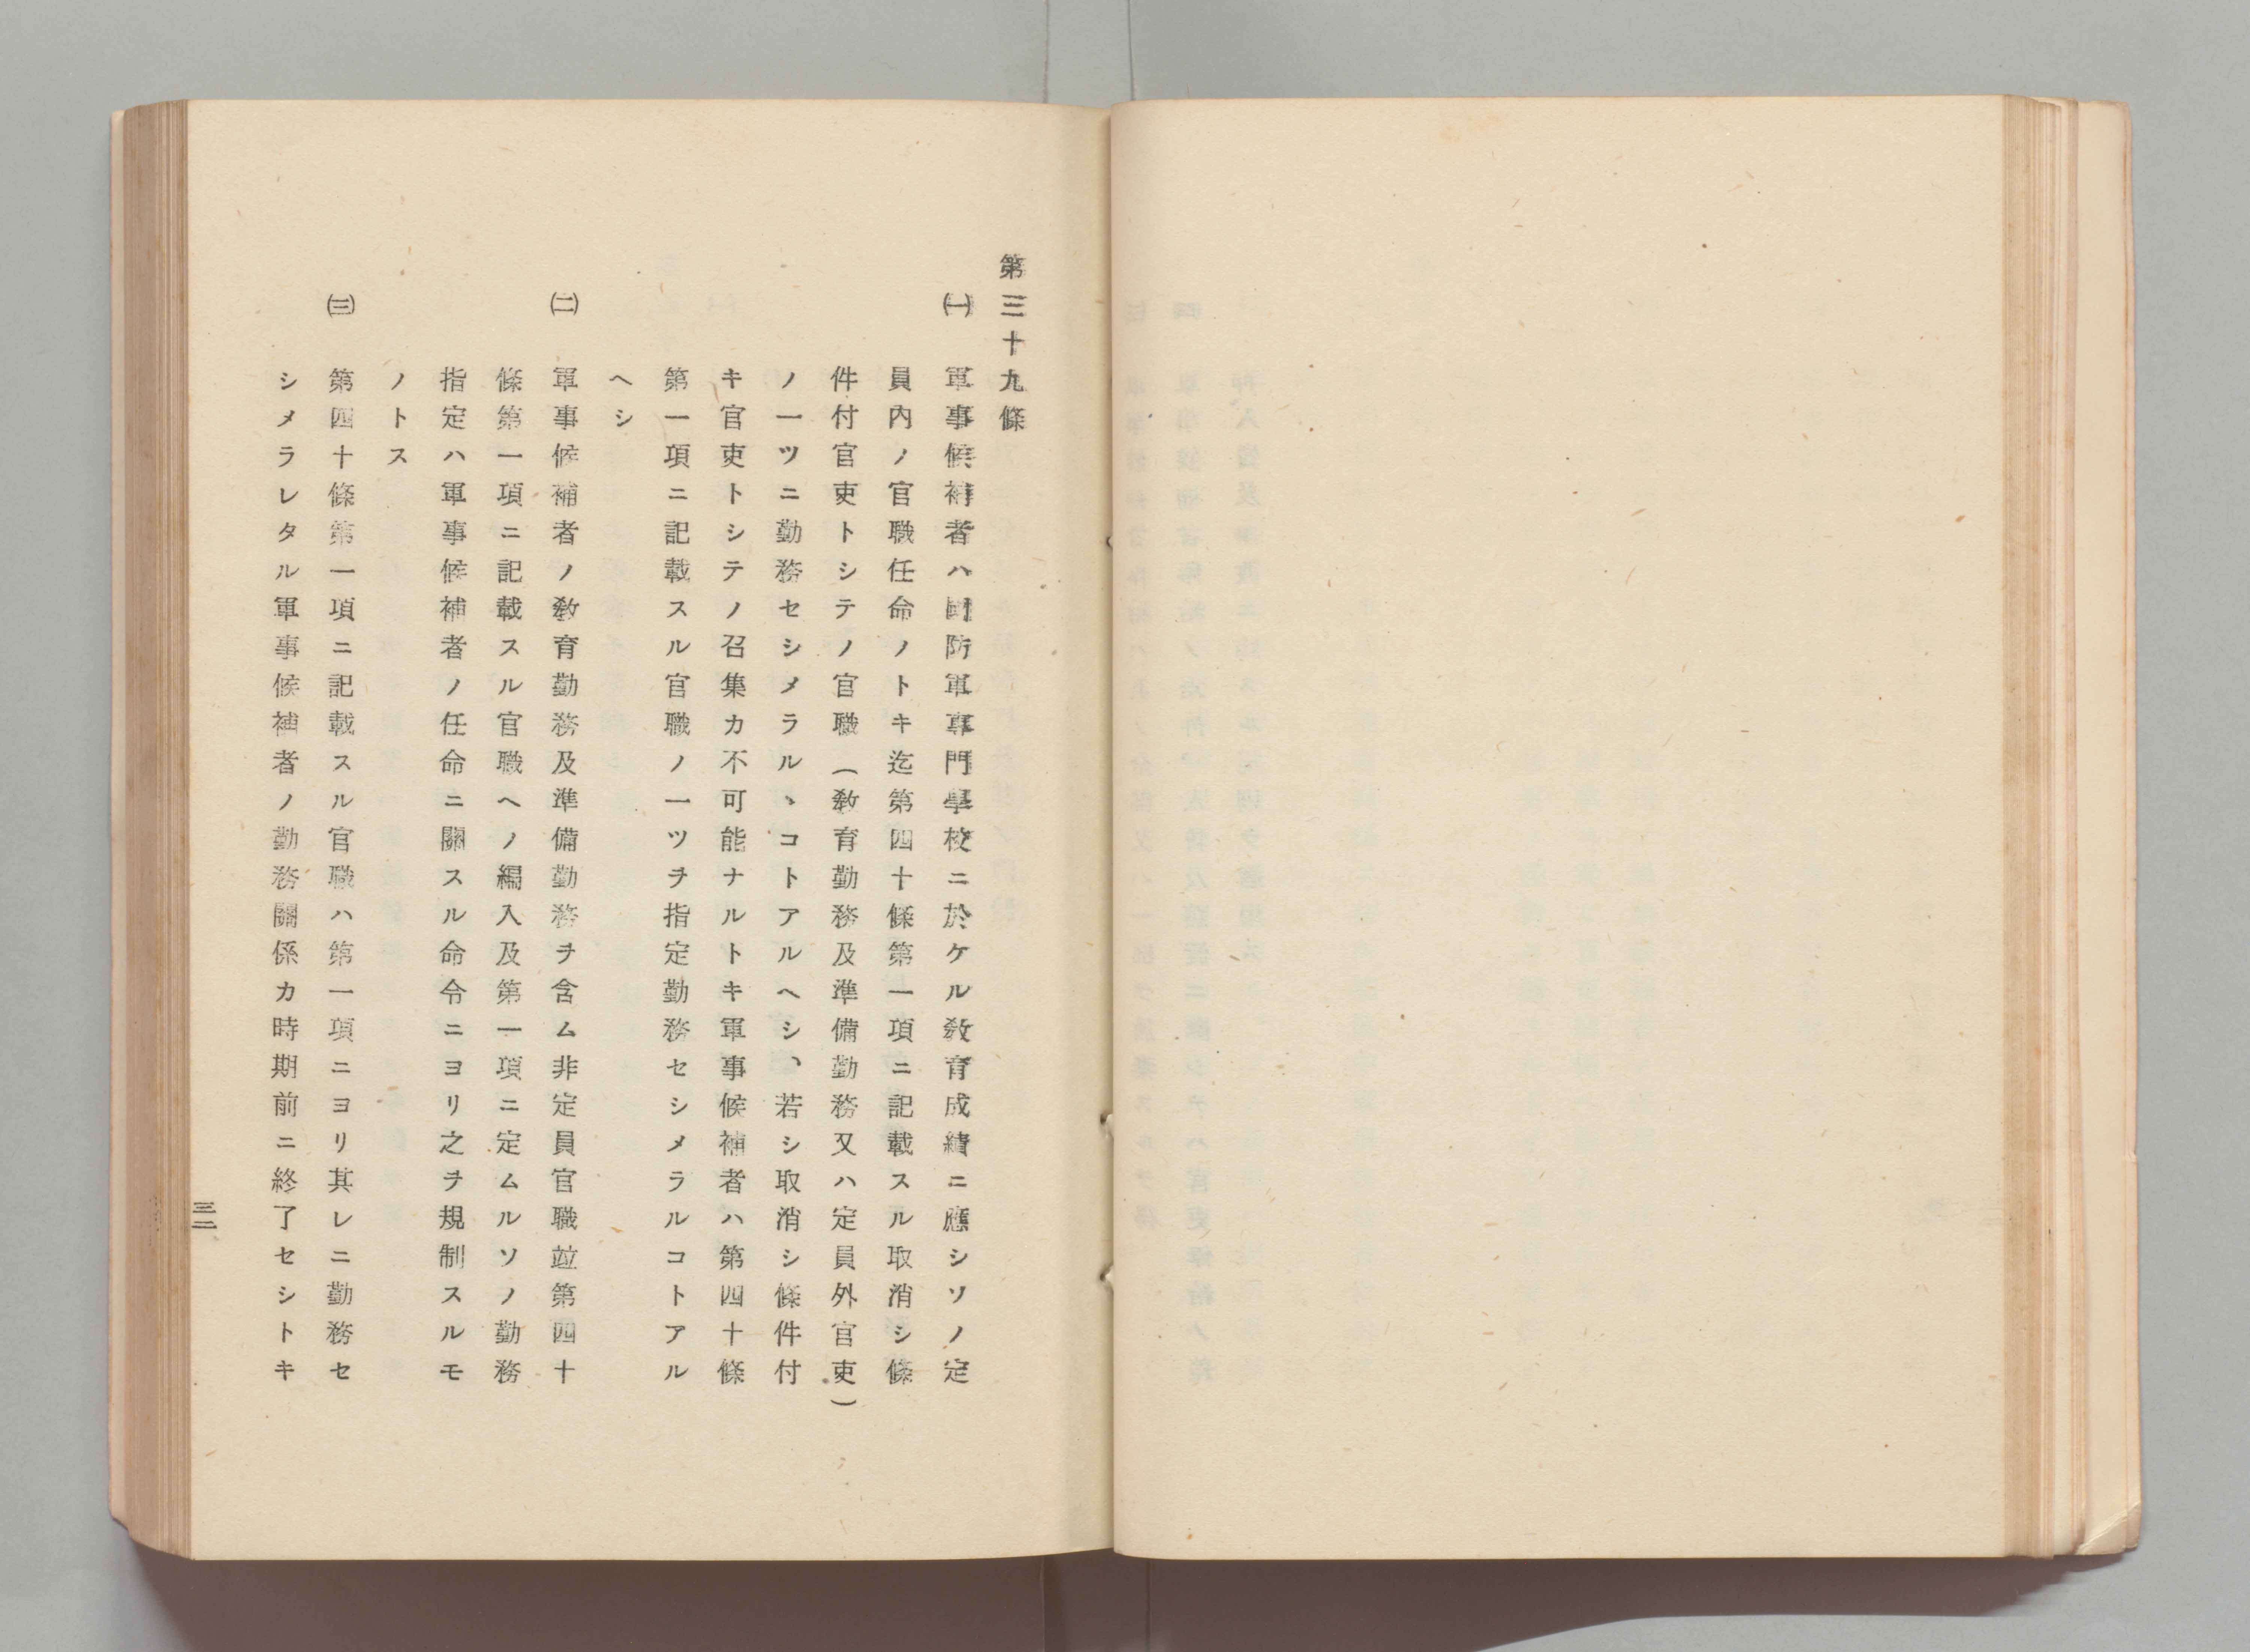 第三十九條
㈠ 軍事候補者ハ國防軍專門學校ニ於ケル敎育成績ニ應シソノ定
員內ノ官職任命ノトキ迄第四十條第一項ニ記載スル取消シ條
件付官吏トシテノ官職（敎育勤務及準備勤務又ハ定員外官吏）
ノ一ツニ勤務セシメラルヽコトアルヘシ、若シ取消シ條件付
キ官吏トシテノ召集カ不可能ナルトキ軍事候補者ハ第四十條
第一項ニ記載スル官職ノ一ツヲ指定勤務セシメラルコトアル
ヘシ
㈡ 軍事候補者ノ敎育勤務及準備勤務ヲ含ム非定員官職竝第四十
條第一項ニ記載スル官職ヘノ編入及第一項ニ定ムルソノ勤務
指定ハ軍事候補者ノ任命ニ關スル命令ニヨリ之ヲ規制スルモ
ノトス
㈢ 第四十條第一項ニ記載スル官職ハ第一項ニヨリ其レニ勤務セ
シメラレタル軍事候補者ノ勤務關係カ時期前ニ終了セシトキ
三二